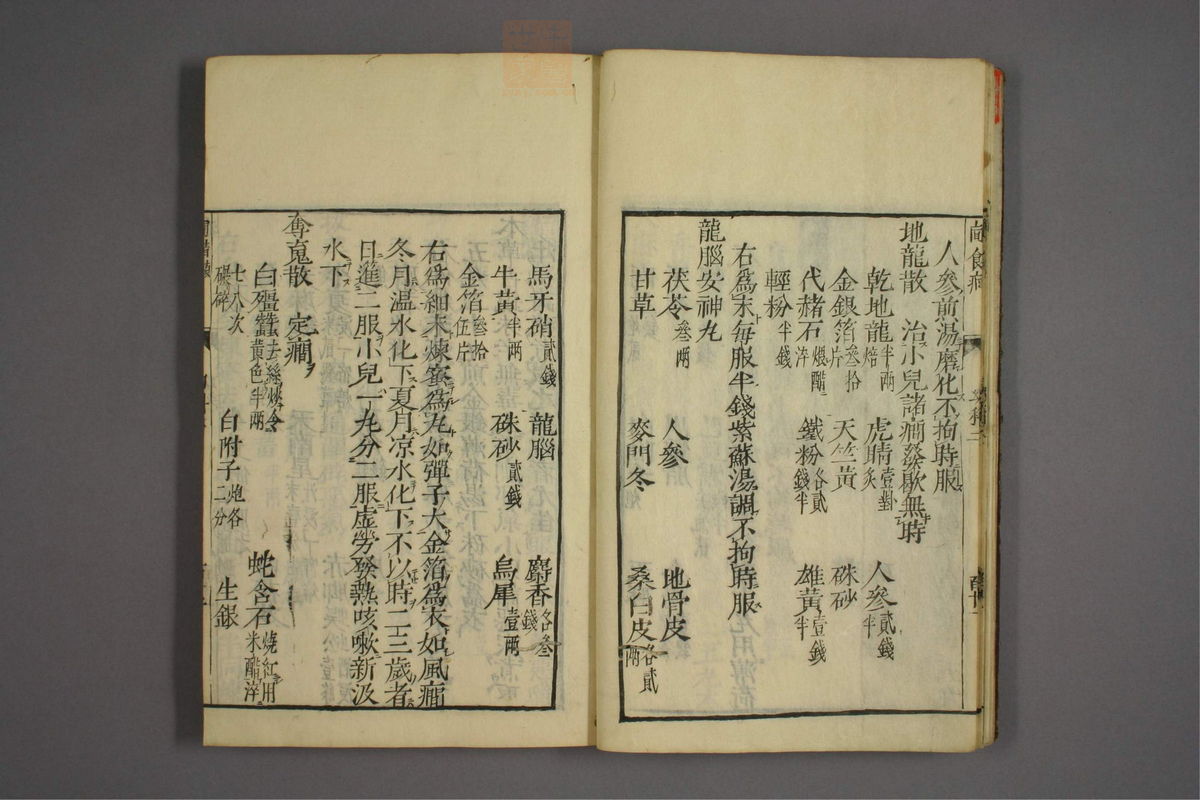 人參前湯磨化不拘時服
地龍散　治小兒諸癇發歇無時
乾地龍半兩焙　虎睛壹對炙　人參貳錢半
金銀箔叄拾片　天竺黃　硃砂
代赭石煅醋淬　鐵粉各貳錢半　雄黃壹錢半
輕粉半錢
右爲末每服半錢紫蘇湯調不拘時服
龍腦安神丸
茯苓叄兩　人參　地骨皮
甘草　麥門冬　桑白皮各貳兩
馬牙硝貳錢　龍腦　麝香各叄錢
牛黃半兩　硃砂貳錢　烏犀壹兩
金箔叄拾伍片
右爲細末煉蜜爲丸如彈子大金箔爲衣如風癎
冬月溫水化下夏月凉水化下不以時二三歲者
日進二服小兒一丸分二服虛勞發熱咳嗽新汲
水下
奪䰟散　定癎
白殭蠶去絲燃令黃色半兩　蛇含石燒紅用米醋淬
七八次碾碎　白附子炮各二分　生銀